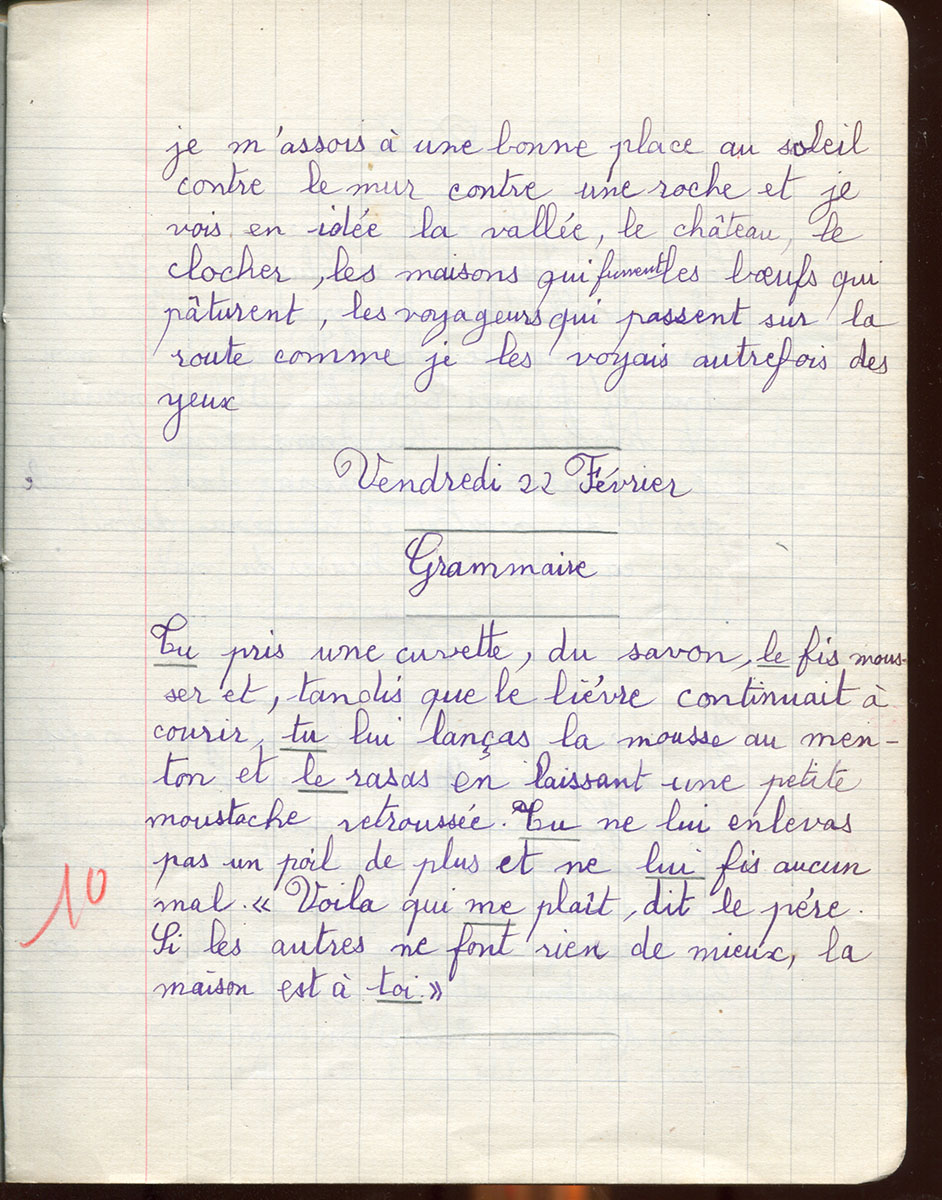 je m'assois à une bonne place au soleil
contre le mur contre une roche et je
vois en idée la vallée, le château, le
clocher, les maisons qui fument les bœufs qui
pâturent, les voyageurs qui passent sur la
route comme je les voyais autrefois des
yeux
Vendredi 22 Février
Grammaire
Tu pris une cuvette, du savon, le fis mous-
ser et, tandis que le liévre continuait à
courir, tu lui lanças la mousse au men-
ton et le rasas en laissant une petite
moustache retroussée. Tu ne lui enlevas
pas un poil de plus et ne lui fis aucun
10
mal. « Voila qui me plaît, dit le pére.
Si les autres ne font rien de mieux, la
maison est à toi. »